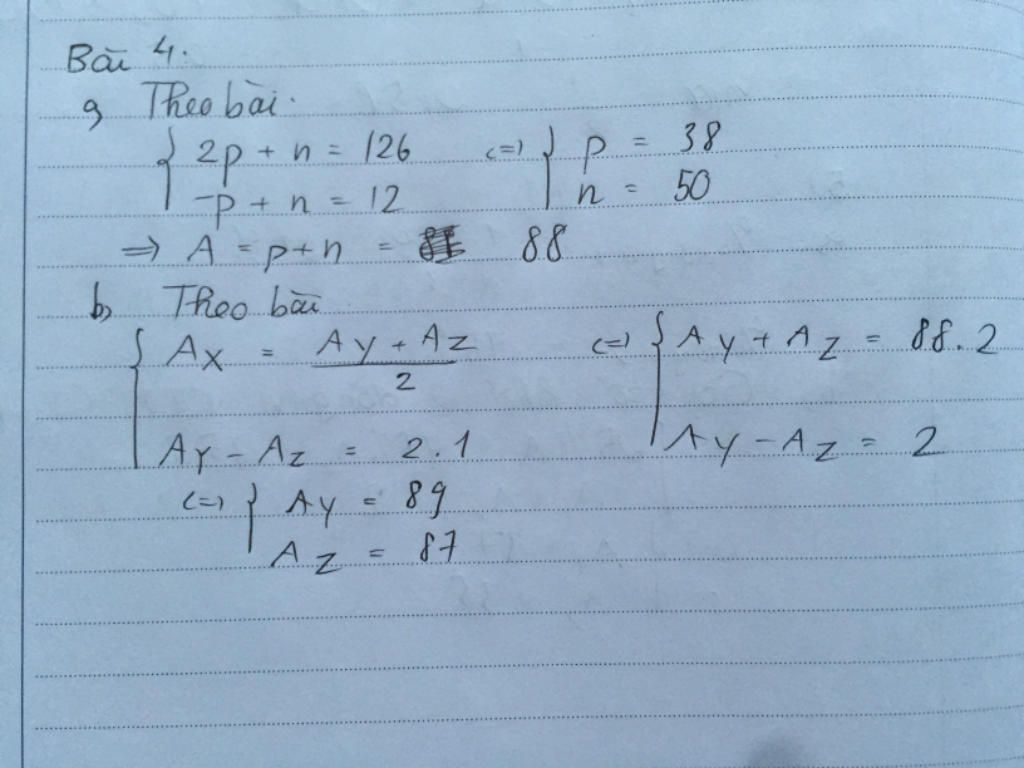 Bài 4.
a, Theo bài.
{ 2p + n = 126 (=) { p = 38
-p + n = 12 n = 50
=> A = p+n = 88
b, Theo bài
{ AX = (AY + AZ)/2 (=) { AY + AZ = 88.2
AY - AZ = 2.1 AY - AZ = 2
(=) { AY = 89
AZ = 87